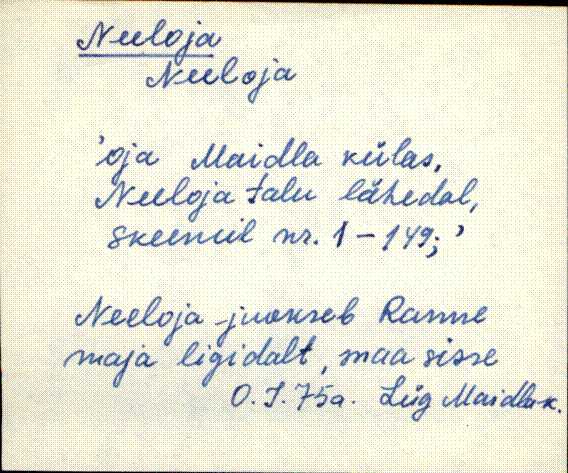 Neeloja
Neeloja
'oja Maidla külas,
Neeloja talu lähedal,
skeemil nr. 1-149;'
Neeloja juokseb Ranne
maja ligidalt, maa sisse
O.J. 75a. Lüg Maidla k.